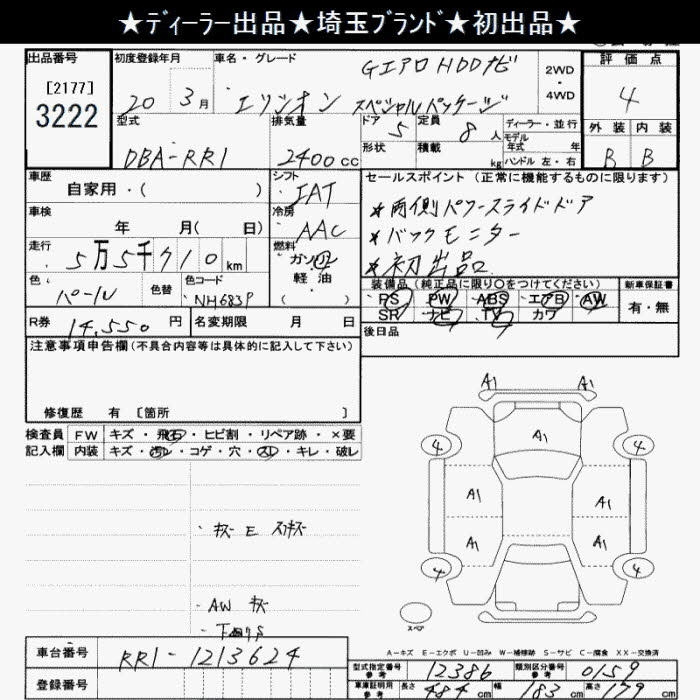 ★ディーラー出品★埼玉ブランド★初出品★
出品番号
[2177]
3222
初度登録年月
20 3月
車名・グレード
GエアロHDDナビ
エリシオン スペシャルパッケージ
2WD
・
4WD
評価点
4
外装 内装
B B
型式
DBA-RR1
排気量
2400cc
ドア 5
形状
定員 8人
積載 kg
ディーラー・並行
モデル
年式 年
ハンドル 左・右
車歴
自家用・( )
シフト
IAT
車検
年 月( 日)
冷房
AAC
走行
5万5千910km
燃料
ガソリン
軽油
( )
色
パール
色替
色コード
NH683P
R券 14,550円
名変期限 月 日
セールスポイント (正常に機能するものに限ります)
*両側パワースライドドア
*バックモニター
*初出品
装備品(純正品に限り○をつけてください)
・PS ・PW ・ABS ・エアB ・AW
SR ナビ ・TV カワ
新車保証書
有・無
後日品
注意事項申告欄(不具合内容等は具体的に記入して下さい)
修復歴 有 [箇所 ]
検査員
記入欄
FW キズ・飛石・ヒビ割・リペア跡・×要
内装 キズ・汚レ・コゲ・穴・スレ・キレ・破レ
・キズ E
・AW キズ
A1 A1
4 A1 4
A1 A1
A1 A1
4 4
スペア
A-キズ E-エクボ U-凹み W-補修跡 S-サビ C-腐食 XX-交換済
車台番号 RR1-1213624
登録番号
型式指定番号
参考
12386
類別区分番号
参考
0159
車庫証明用
参考
長さ 484cm 幅 183cm 高さ 179cm